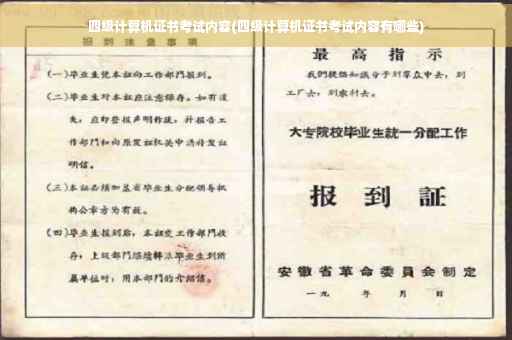 四级计算机证书考试内容(四级计算机证书考试内容有哪些)
报到注意事项
(一)毕业生凭本证向工作部门报到。
(二)毕业生对本证应注意保存。如有遗
失，应即登报声明作废，并报告工
作部门和向原发证机关申请补发证
明信。
(三)本证必须加盖省毕业生分配领导机
构公章方为有效。
(四)毕业生报到后，本证交工作部门收
存；上级部门继续转派毕业生到所
属单位时，用本部门的介绍信。
最高指示
我们提倡知识分子到群众中去，到
工厂去，到农村去。
大专院校毕业生統一分配工作
报到証
安徽省革命委員会制定
一九 年 月 日